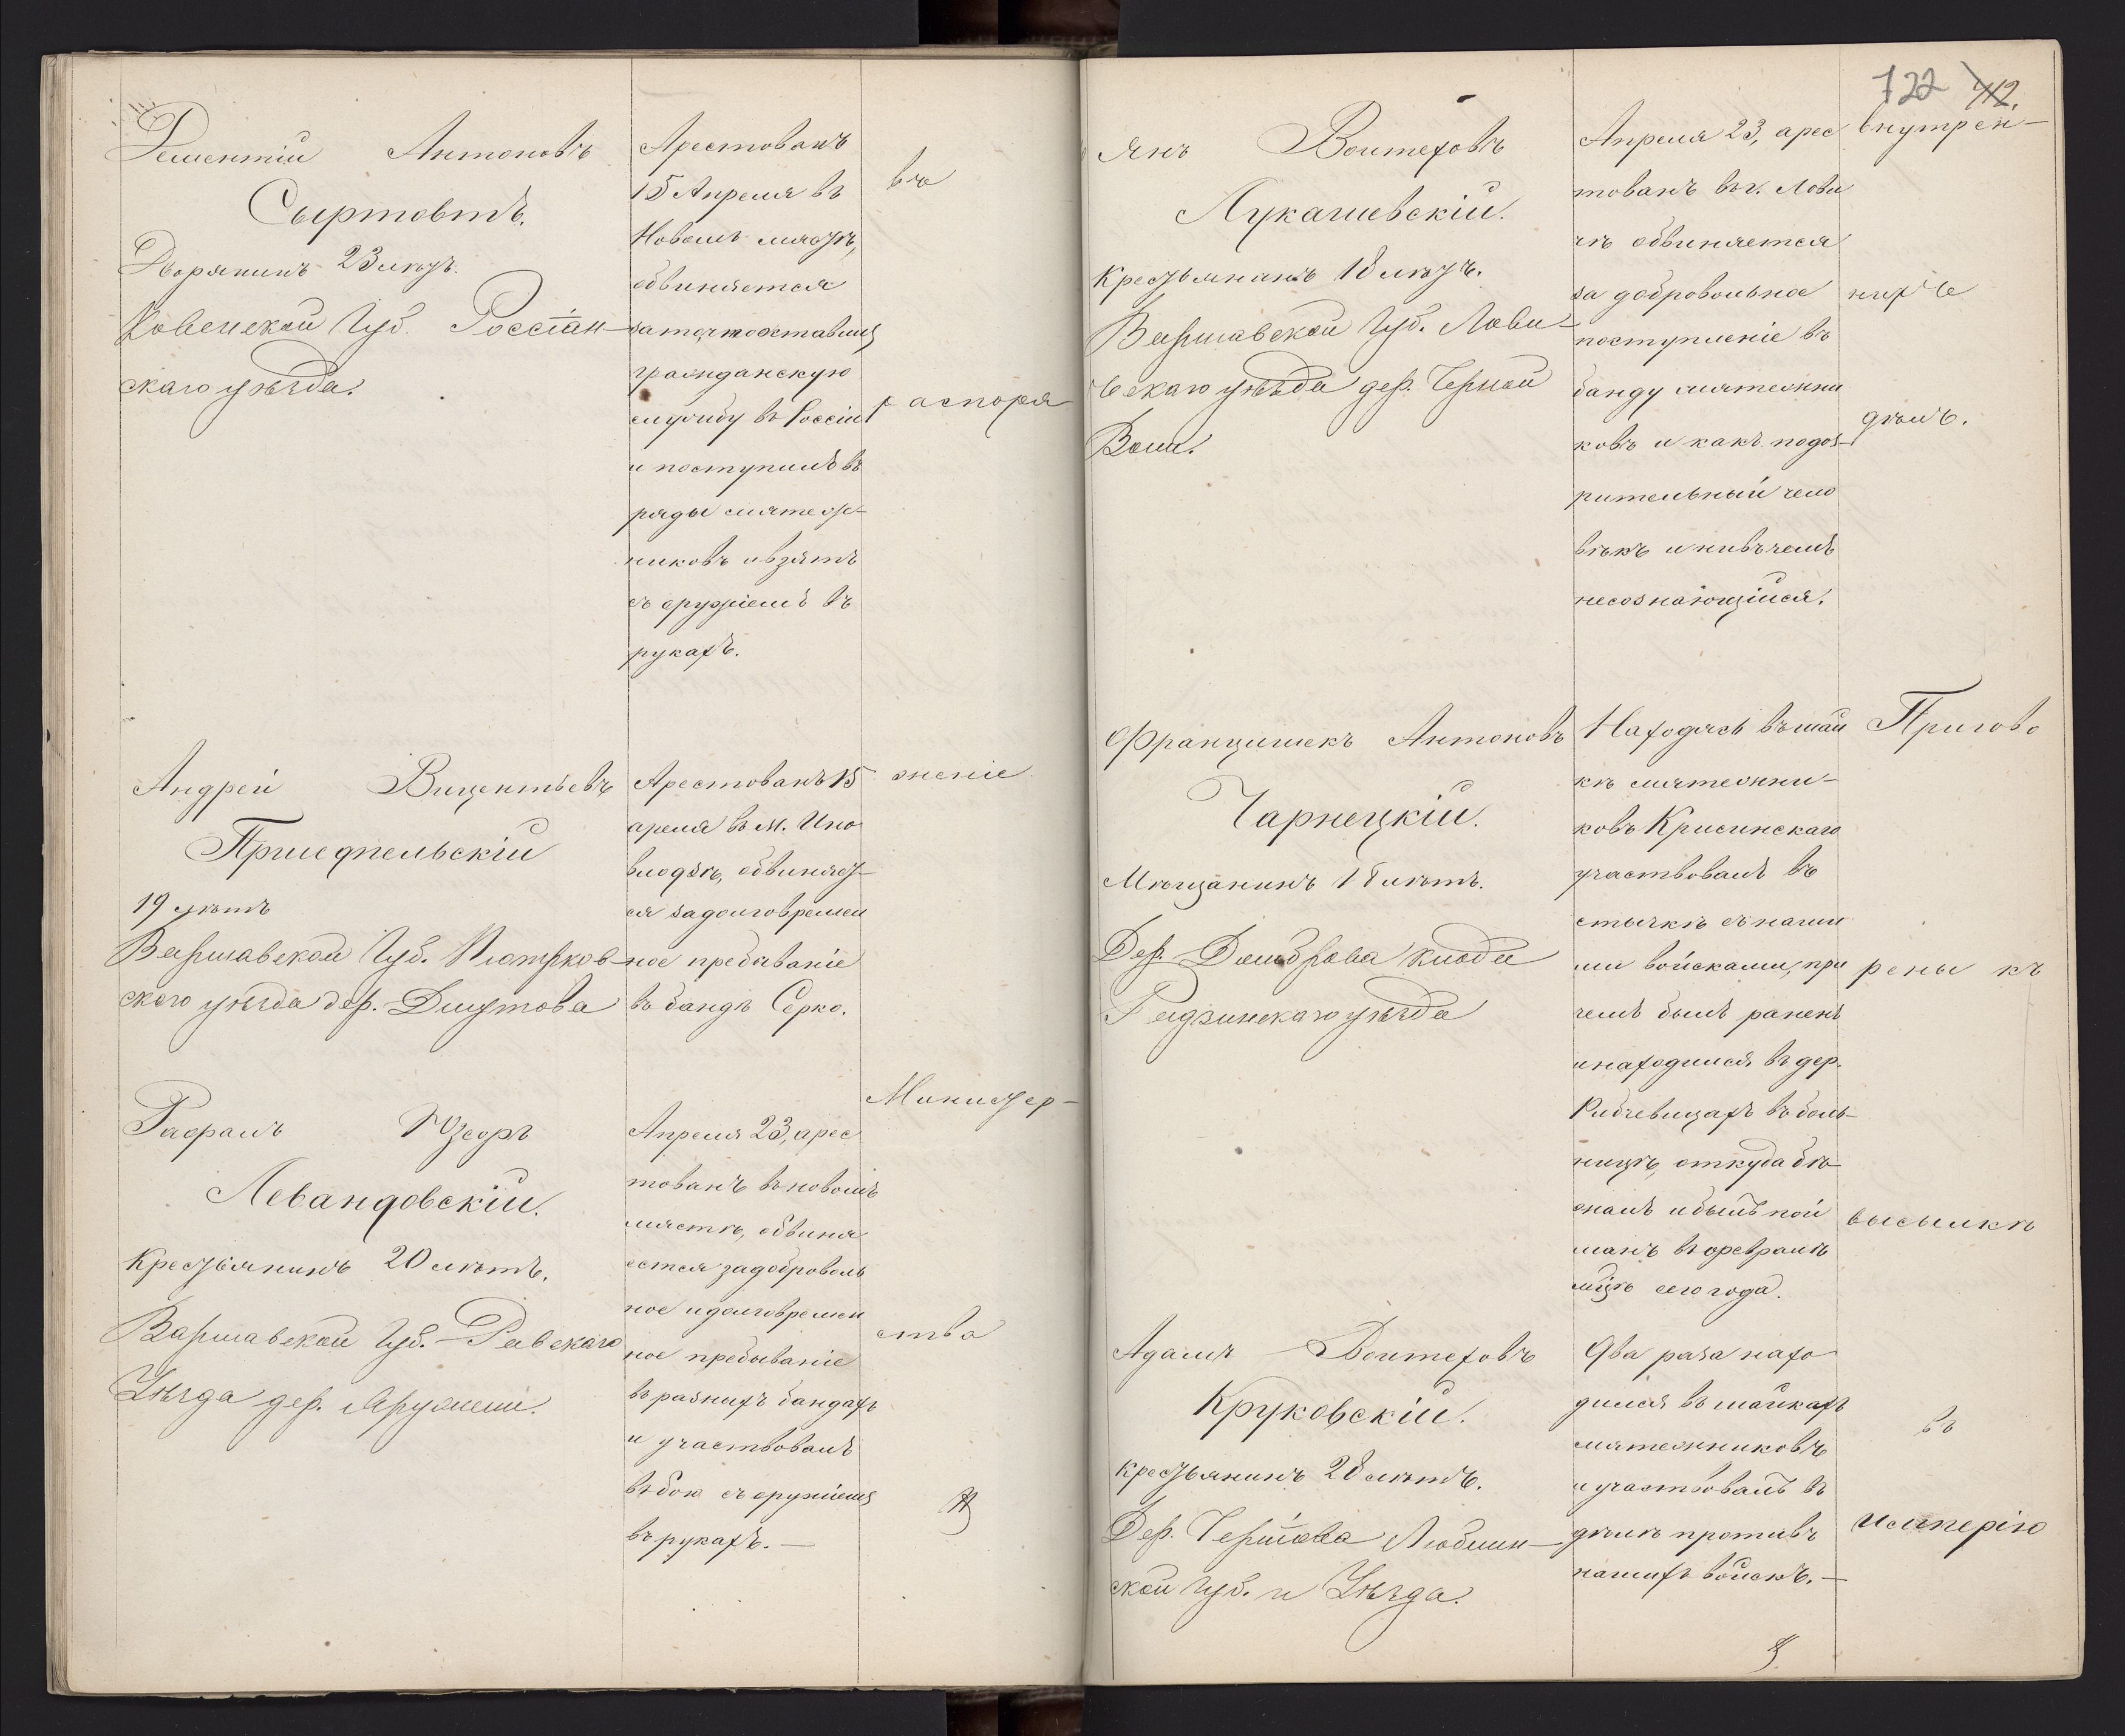 Дементій Антоновъ
Сыртовтъ.
Дворянинъ 23 лѣтъ.
Ковенской Губ. Россіан-
скаго уѣзда.
Арестованъ
15 Апреля въ
Новомъ мястѣ,
обвиняется
за то, что оставивъ
гражданскую
службу въ Россіи
и поступилъ въ
ряды мятеж-
никовъ и взятъ
съ оружіемъ въ
рукахъ.
въ
распоря
Андрей Вицентьевъ
19 лѣтъ
Варшавской Губ. Піотрков-
скаго уѣзда дер.
Арестованъ 15
апреля въ м. Ино
влодзѣ, обвиняет-
ся за долговремен
ное пребываніе
въ бандѣ Серко.
женіе
Рафаилъ
Левандовскій.
Крестьянинъ 20 лѣтъ.
Варшавской Губ. Равскаго
Уѣзда дер.
Апреля 23, арес
тованъ въ новомъ
мястѣ, обвиня
ется за доброволь
ное и долговремен
ное пребываніе
въ разныхъ бандахъ
и участвовалъ
въ бою съ оружіемъ
въ рукахъ. —
Министер-
ства
722 412.
Янъ Войтеховъ
Лукашевскій.
Крестьянинъ 18 лѣтъ.
Варшавской Губ. Лови-
чскаго уѣзда дер. Черной
Воли.
Апреля 23, арес
тованъ въ г. Лови
чѣ обвиняется
за добровольное
поступленіе въ
банду мятежни
ковъ и какъ подоз-
рительный чело
вѣкъ и ни въ чемъ
несознающійся.
внутрен-
нихъ
дѣлъ.
Францишекъ Антоновъ
Чарнецкій.
Мѣщанинъ 18 лѣтъ.
Дер. Домброва
Радзинскаго уѣзда
Находясь въ шай
кѣ мятежни-
ковъ Крисинскаго
участвовалъ въ
стычкѣ съ наши
ми войсками, при
чемъ былъ раненъ
и находился въ дер.
Рибчевицахъ въ боль-
ницѣ, откуда бѣ-
жалъ и былъ пой
манъ въ февралѣ
м͠цѣ сего года.
Пригово
рены къ
высылкѣ
Адамъ Войтеховъ
Круковскій.
Крестьянинъ 28 лѣтъ.
Дер. Люблин-
ской Губ. и Уѣзда.
Два раза нахо
дился въ шайкахъ
мятежниковъ
и участвовалъ въ
дѣлѣ противъ
нашихъ войскъ. —
въ
имперію